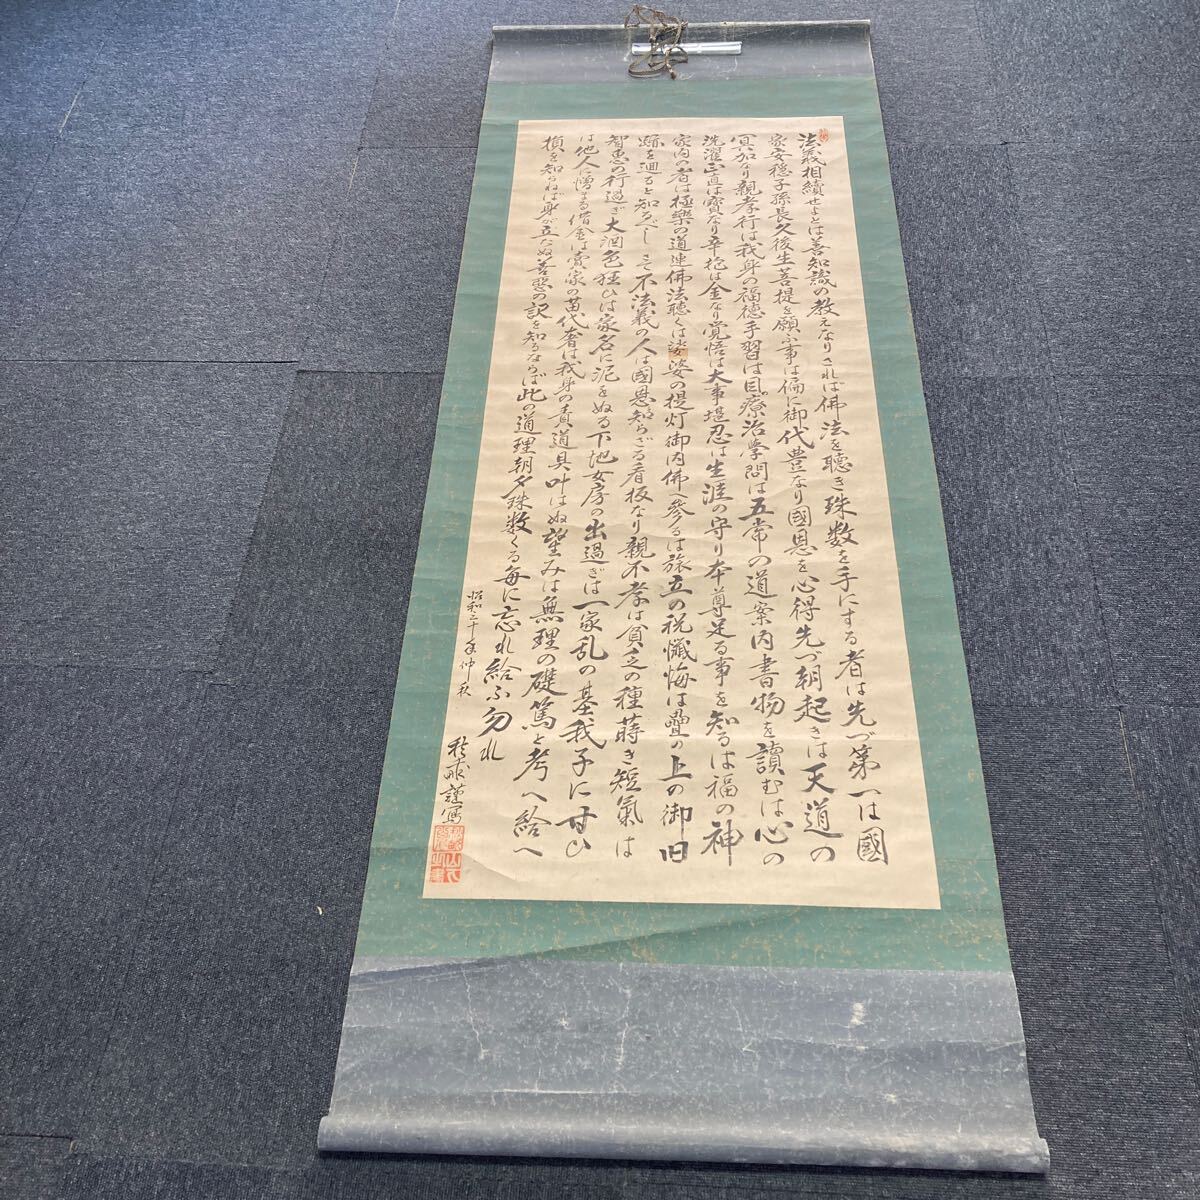 法義相續せよとは善知識の教えなりされば佛法を聴き珠数を手にする者は先づ第一は國
家安穏子孫長久後生菩提を願ふ事は偏に御代豊なり國恩を心得先づ朝起きは天道の
冥加なり親孝行は我身の福德手習は目の療治学問は五常の道案内書物を讀むは心の
洗濯正直は寳なり辛抱は金なり覚悟は大事堪忍は生涯の守り本尊足る事を知るは福の神
家内の者は極樂の道連佛法聴くは姿の提灯御内佛へ参るは旅立の祝懺悔は疊の上の御旧
跡を廻ると知るべし 不法義の人は國恩知らざる看板なり親不孝は貧乏の種蒔き短氣は
智恵の行過ぎ大酒色狂ひは家名に泥をぬる下地女房の出過ぎは一家乱の基我子に甘ひ
は他人に憎まる借金は賣家の苗代奢は我身の責道具叶はぬ望みは無理の礎篤と考へ給へ
損を知らねば身が立たぬ善惡の訳を知るならば此の道理朝夕珠数くる毎に忘れ給ふ勿れ
昭和三十年仲秋
謹寫